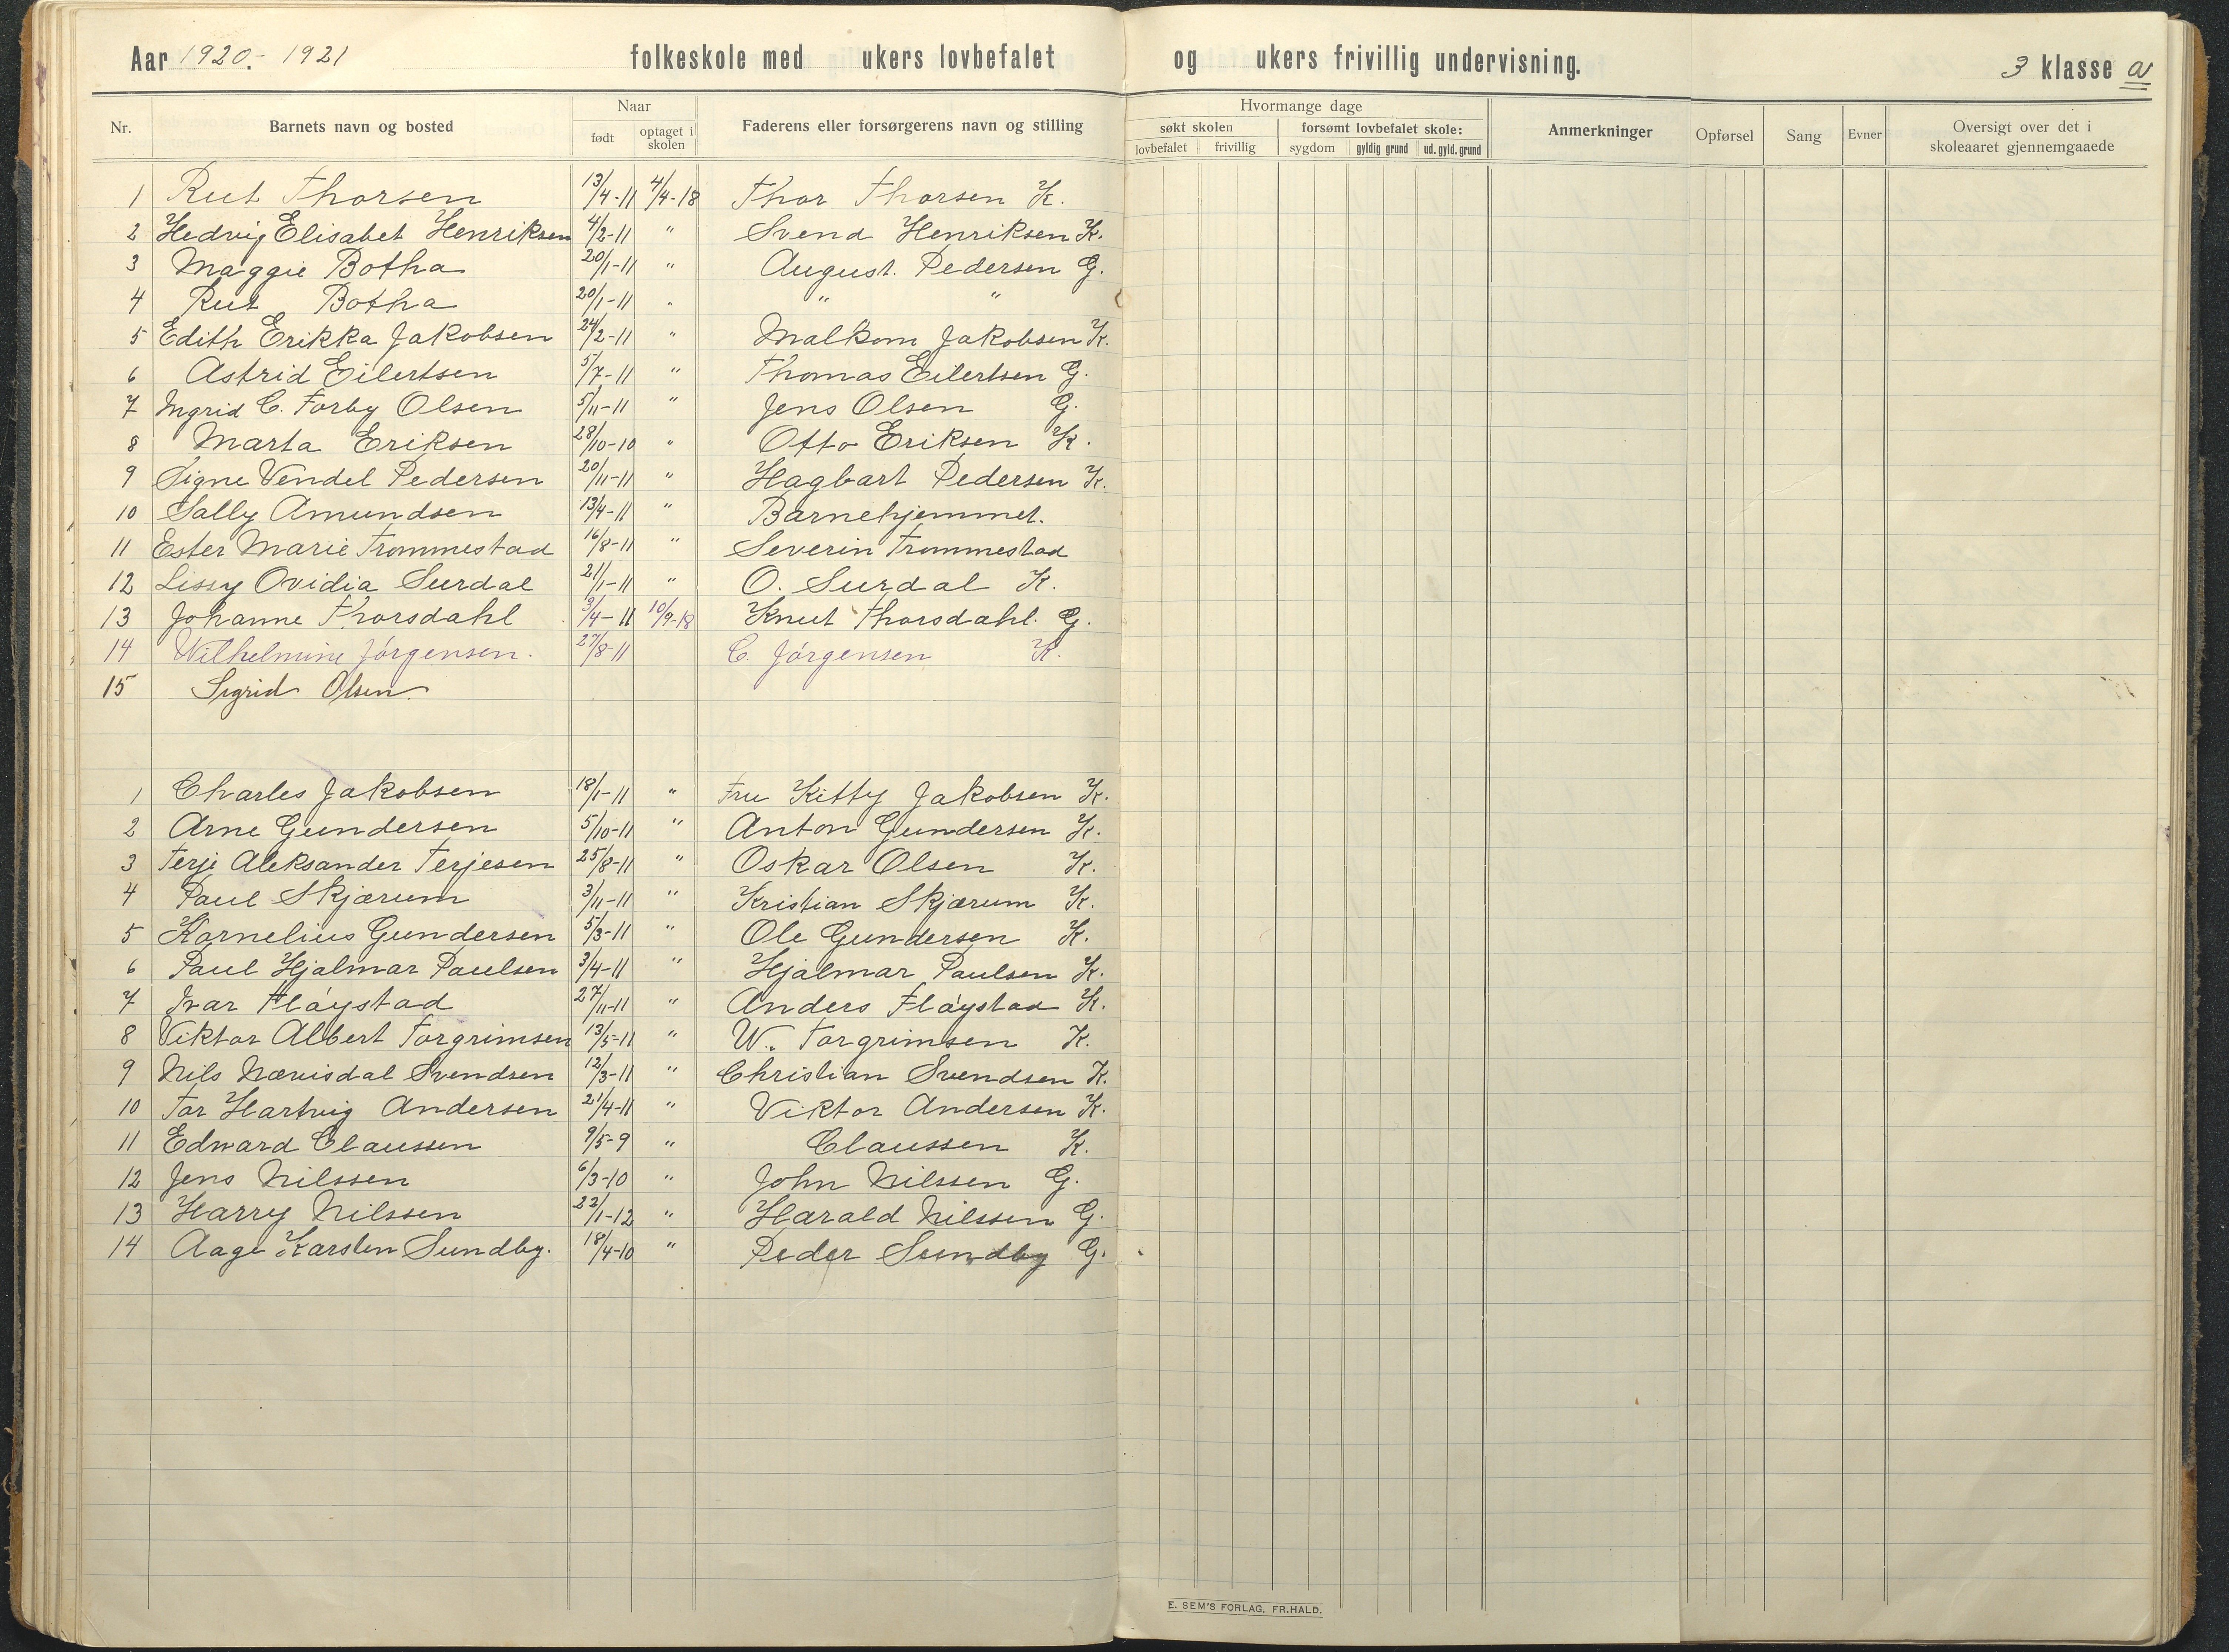 Aar 1920.- 1921 folkeskole med ukers lovbefalet og ukers frivillig undervisning. 3 klasse a
Nr. Barnets navn og bosted Naar Faderens eller forsørgerens navn og stilling Hvormange dage Anmerkninger Opførsel Sang Evner Oversigt over det i skoleaaret gjennemgaaede
født optaget i skolen søkt skolen forsømt lovbefalet skole:
lovbefalet frivillig sygdom gyldig grund ud. gyld. grund
1 Rut Thorsen 13/4-11 4/4-18 Thor Thorsen K.
2 Hedvig Elisabet Henriksen 4/2-11 " Svend Henriksen K.
3 Maggie Botha 20/1-11 " August. Pedersen G.
4 Rut Botha 20/1-11 " " "
5 Edith Erikka Jakobsen 24/2-11 " Malkom Jakobsen K.
6 Astrid Eilertsen 5/7-11 " Thomas Eilertsen G.
7 Ingrid C. Torby Olsen 5/11-11 " Jens Olsen G.
8 Marta Eriksen 28/10-10 " Otto Eriksen K.
9 Signe Vendel Pedersen 20/11-11 " Hagbart Pedersen K.
10 Sally Amundsen 13/4-11 " Barnehjemmet.
11 Ester Marie Trommestad 16/8-11 " Severin Trommestad
12 Lissy Ovidia Surdal 21/1-11 " O. Surdal K.
13 Johanne Thorsdahl 9/4-11 10/9-18 Knut Thorsdahl. G.
14 Wilhelmine Jörgensen. 27/8-11 C. Jörgensen K.
15 Sigrid Olsen
1 Charles Jakobsen 18/1-11 " Fru Kitty Jakobsen K.
2 Arne Gundersen 5/10-11 " Anton Gundersen K.
3 Terje Aleksander Terjesen 25/8-11 " Oskar Olsen K.
4 Paul Skjærum 3/11-11 " Kristian Skjærum K.
5 Kornelius Gundersen 5/3-11 " Ole Gundersen K.
6 Paul Hjalmar Paulsen 3/4-11 " Hjalmar Paulsen K.
7 Ivar Fløystad 27/11-11 " Anders Fløystad K.
8 Viktor Albert Torgrimsen 13/5-11 " W. Torgrimsen K.
9 Nils Nævisdal Svendsen 12/3-11 " Christian Svendsen K.
10 Tor Hartvig Andersen 21/4-11 " Viktor Andersen K.
11 Edward Claussen 9/5-9 " Claussen K.
12 Jens Nilssen 6/3-10 " John Nilssen G.
13 Harry Nilssen 22/1-12 " Harald Nilssen G.
14 Aage Karsten Sundby. 18/4-10 " Peder Sundby G.
E. SEM'S FORLAG, FR.HALD.